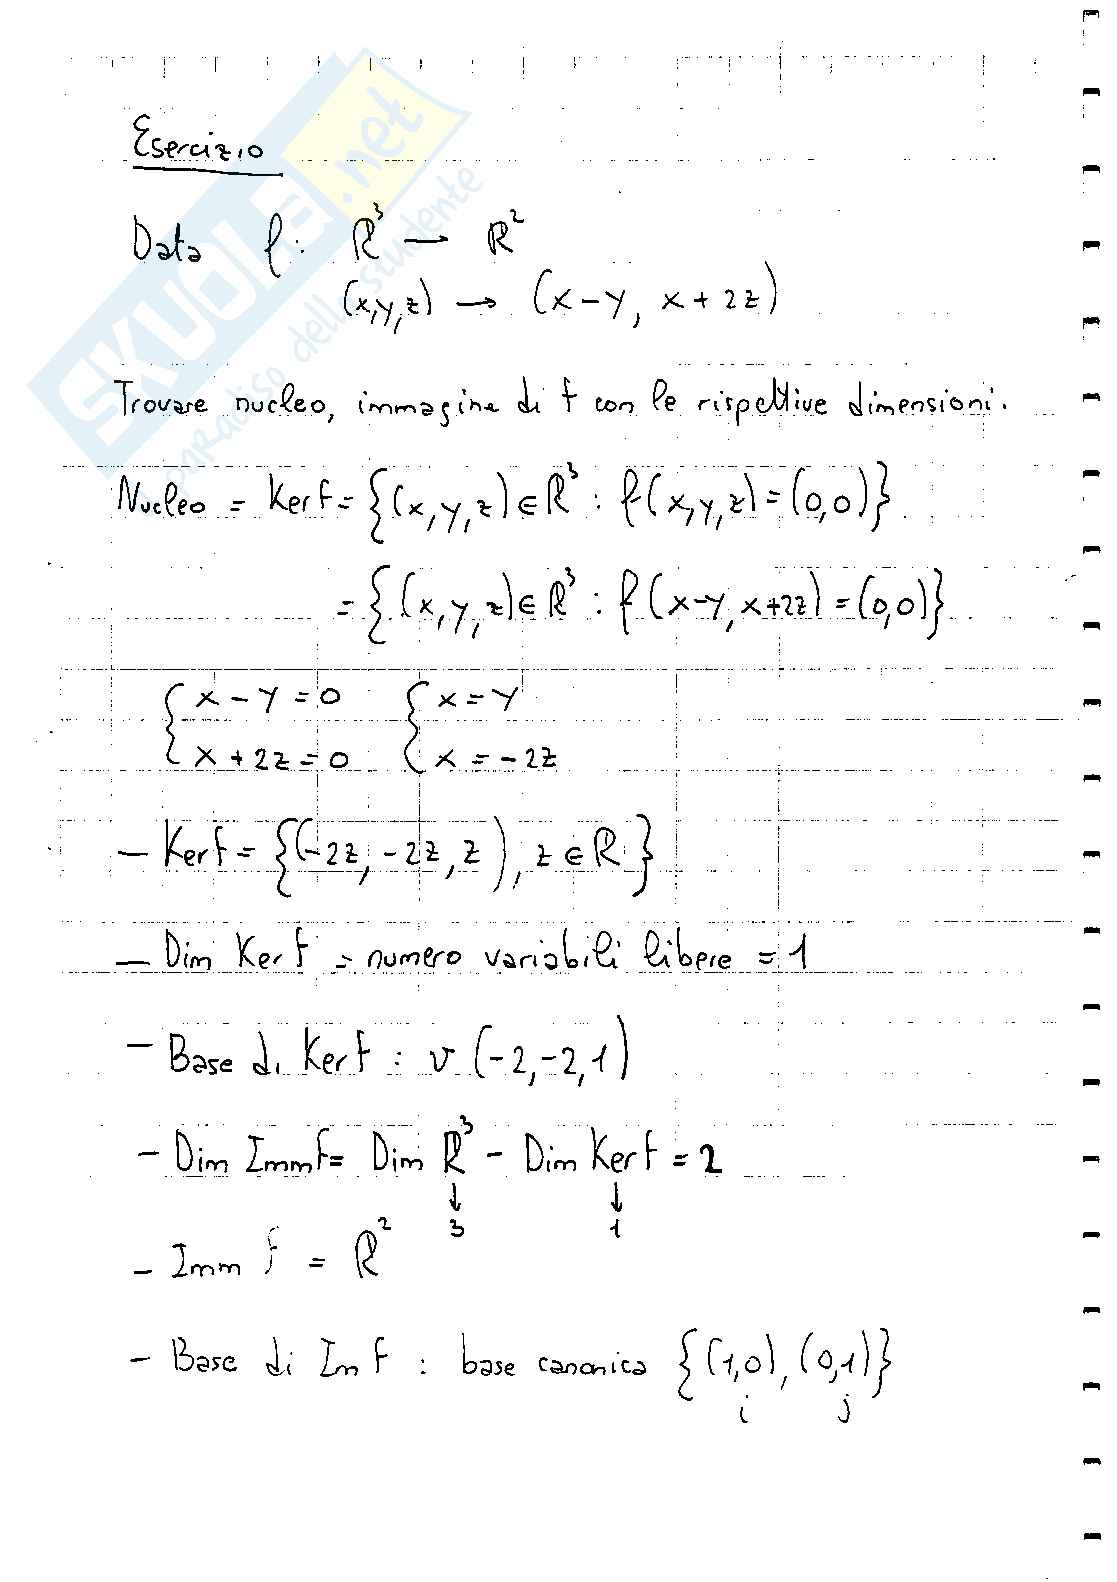 Esercizio
Data f: R³ → R²
(x,y,z) → (x-y, x+2z)
Trovare nucleo, immagine di f con le rispettive dimensioni.
Nucleo = Ker f = {(x,y,z) ∈ R³ : f(x,y,z) = (0,0)}
= {(x,y,z) ∈ R³ : f(x-y, x+2z) = (0,0)}
{ x-y=0 { x=y
{ x+2z=0 { x=-2z
- Ker f = {(-2z, -2z, z), z ∈ R}
- Dim Ker f = numero variabili libere = 1
- Base di Ker f : v (-2,-2,1)
- Dim Imm f = Dim R³ - Dim Ker f = 2
↓ ↓
3 1
- Imm f = R²
- Base di Im f : base canonica {(1,0), (0,1)}
i j
SKUOLA.net
paradiso dello studente